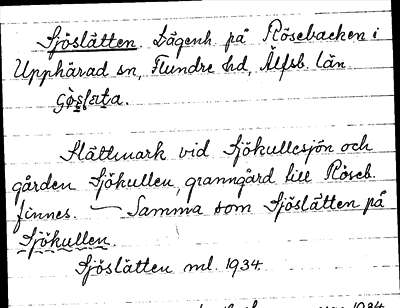 Sjöslätten. Lägenh. på Rösebacken i
Upphärad sn, Flundre hd, Älfsb. län.
Slättmark vid Sjökullesjön och
gården Sjökullen, granngård till Röseb.
finnes. — Samma som Sjöslätten på
Sjökullen.
Sjöslätten ml. 1934.